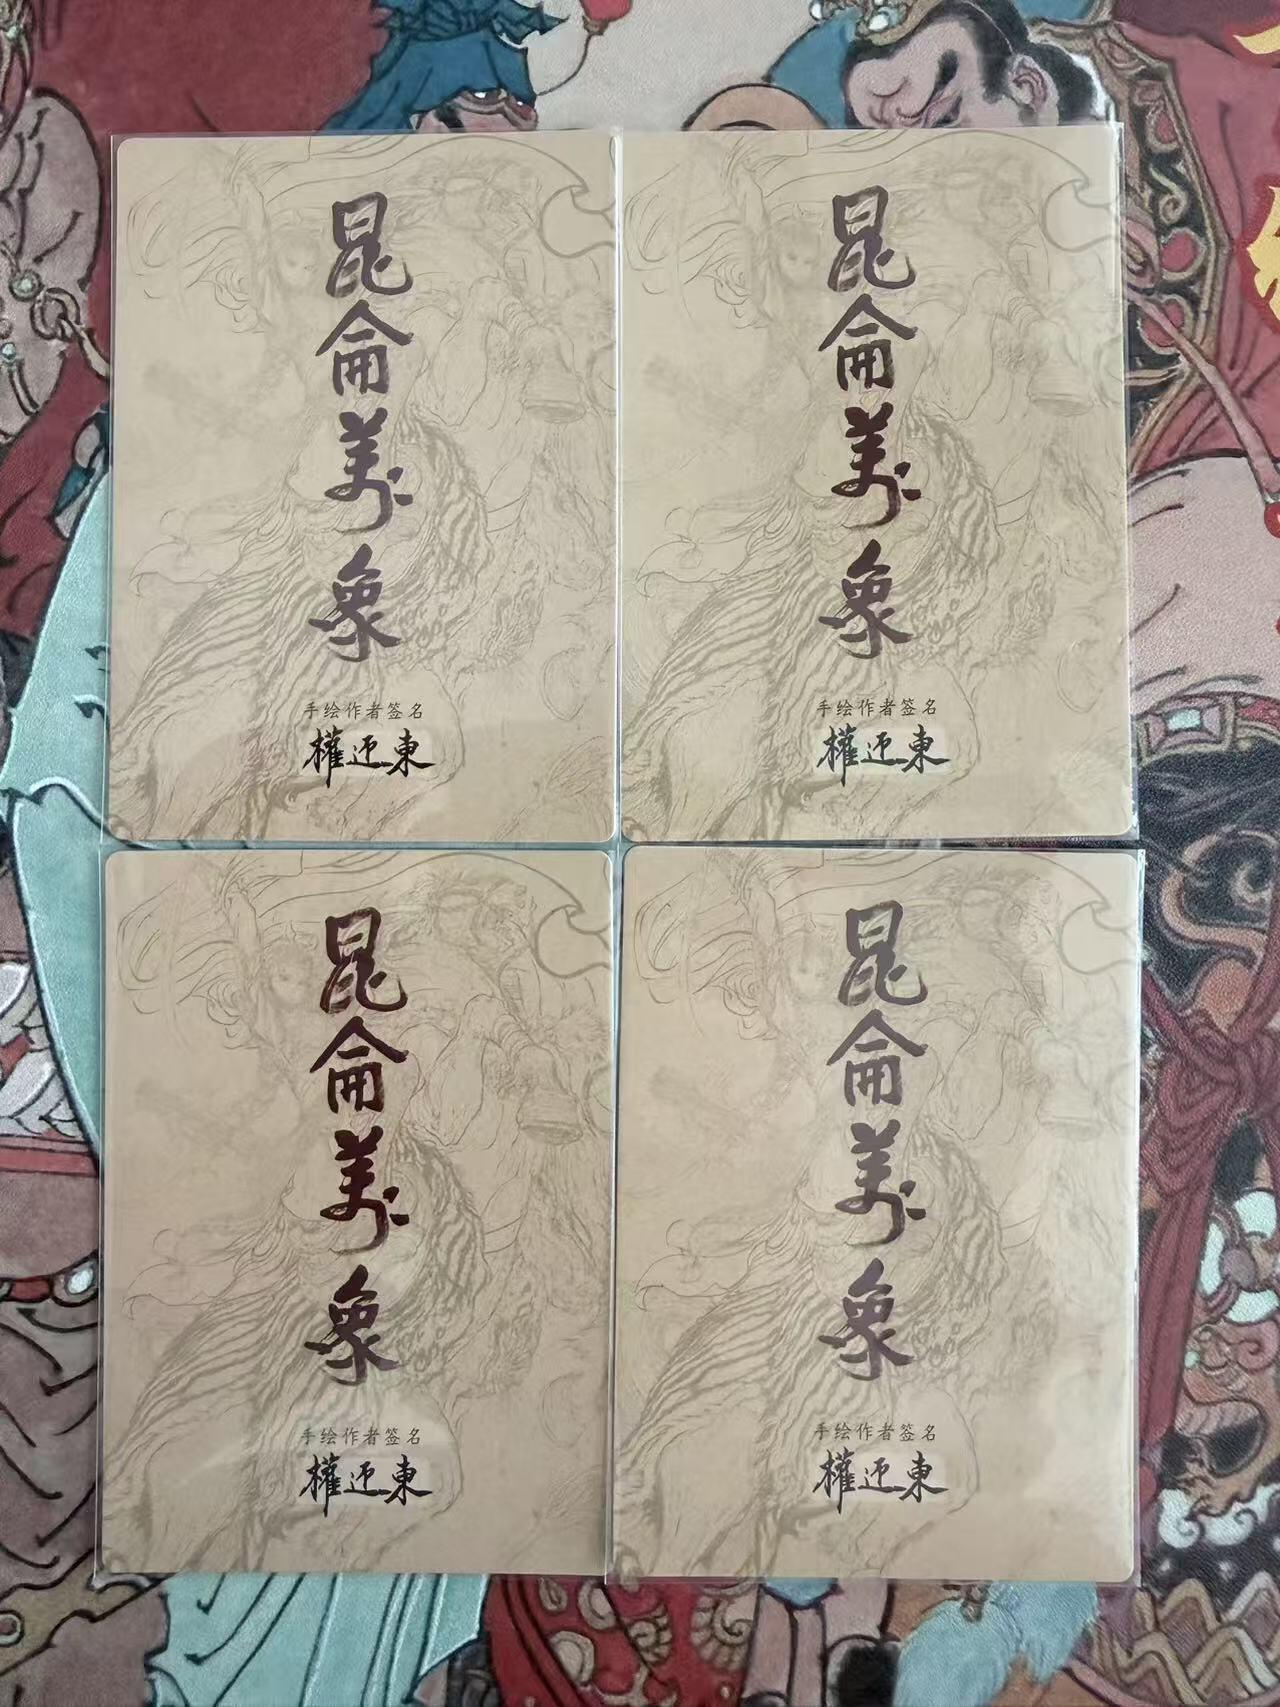 昆侖萬象
手绘作者签名
權迎東
昆侖萬象
手绘作者签名
權迎東
昆侖萬象
手绘作者签名
權迎東
昆侖萬象
手绘作者签名
權迎東